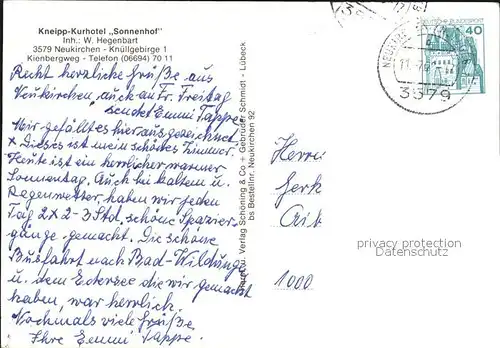 Kneipp-Kurhotel „Sonnenhof"
Inh.: W. Hegenbart
3579 Neukirchen - Knüllgebirge 1
Kienbergweg - Telefon (06694) 70 11
Recht herzliche Grüße aus
Neukirchen, auch an Fr. Freitag
sendet Emmi Tappe.
Mir gefällt es hier ausgezeichnet.
x Dieses ist mein schönes Zimmer.
Heute ist ein herrlicher warmer
Sonnentag. Auch bei kaltem u.
Regenwetter, haben wir jeden
Tag 2x 2-3 Std. schöne Spazier-
gänge gemacht. Die schöne
Busfahrt nach Bad-Wildung
u. dem Edersee die wir gemacht
haben, war herrlich.
Nochmals viele Grüße
Ihre Emmi Tappe.
u. Verlag Schöning & Co + Gebrüder Schmidt - Lübeck
bs Bestellnr. Neukirchen 92
DEUTSCHE BUNDESPOST
40
3579
Herrn
Gerh
1000
privacy protection
Datenschutz